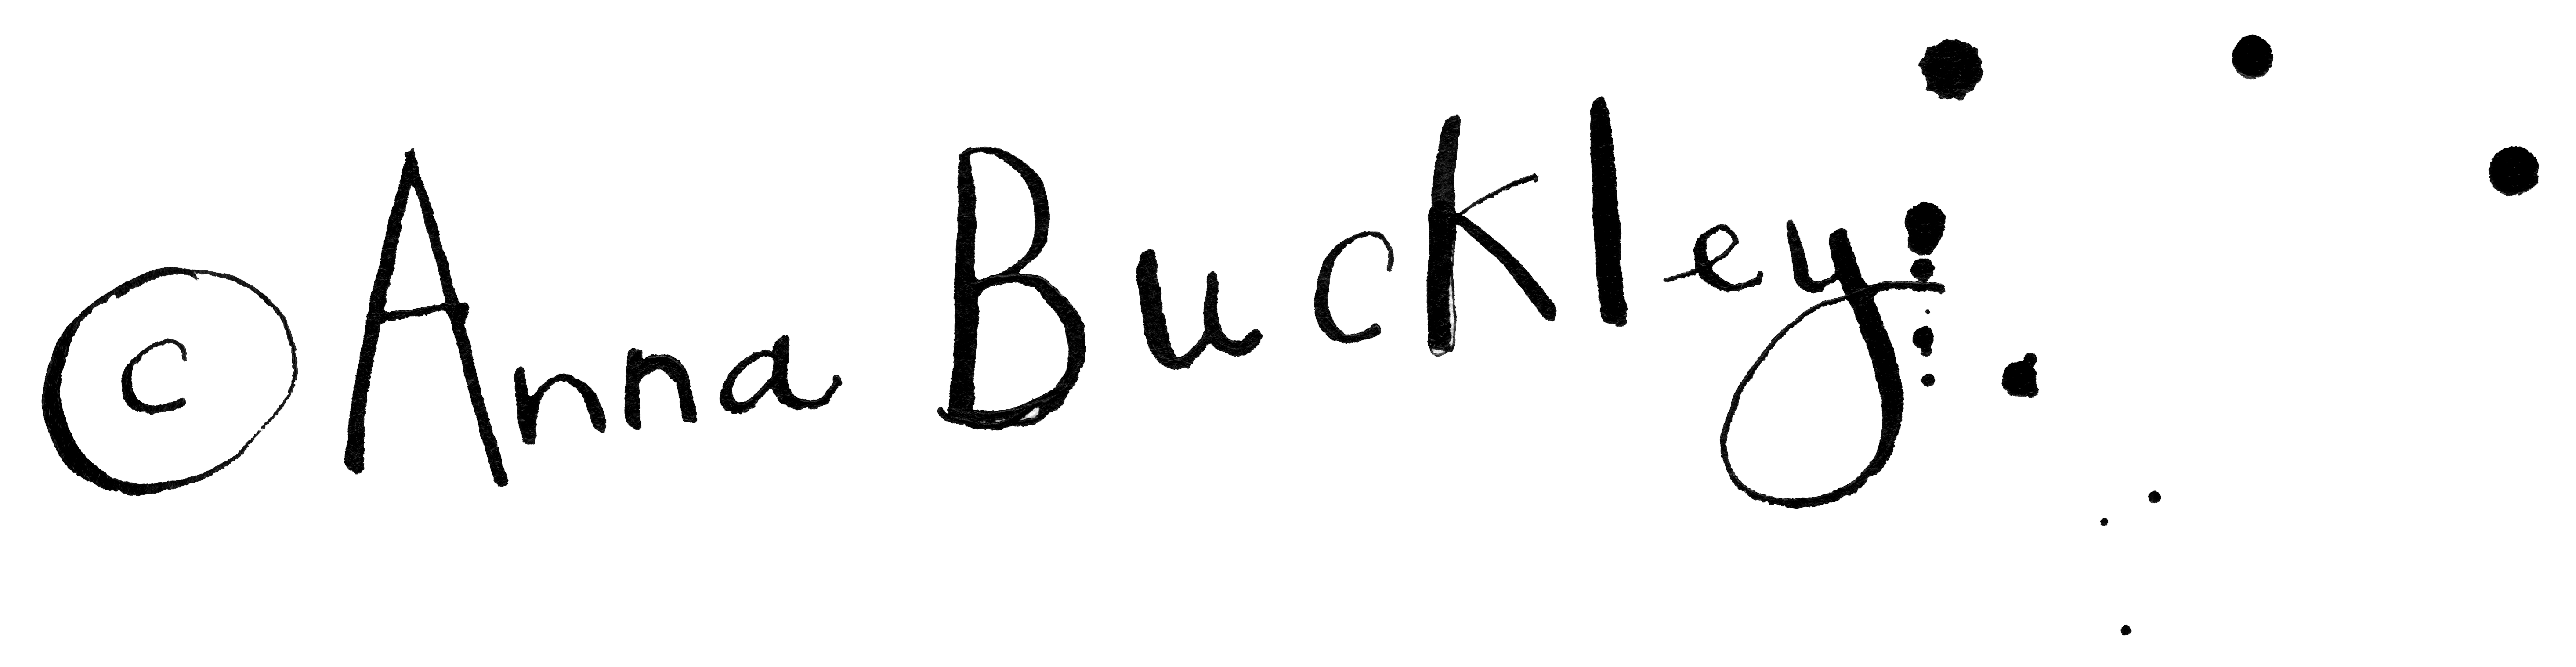 © Anna Buckley